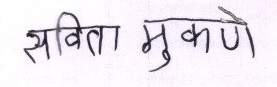 सविता मुकणे